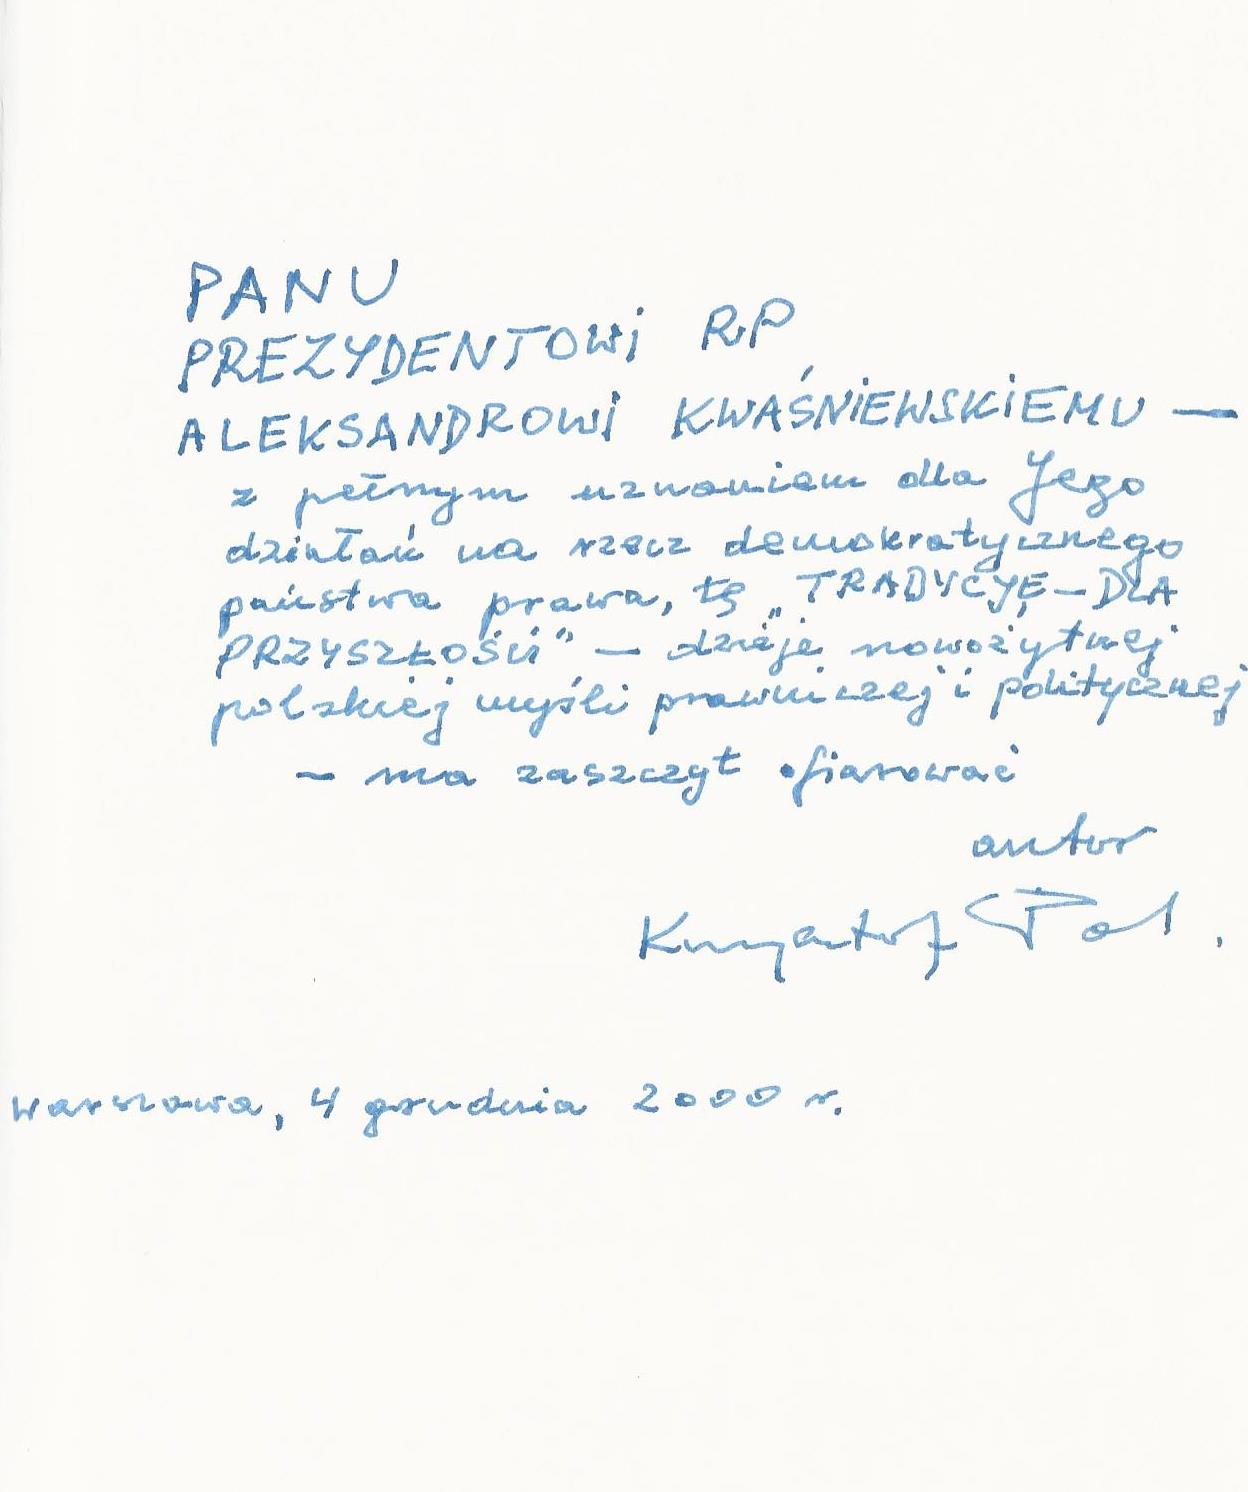 PANU
PREZYDENTOWI RP
ALEKSANDROWI KWAŚNIEWSKIEMU —
z pełnym uznaniem dla Jego
działań na rzecz demokratycznego
państwa prawa, tę „TRADYCJĘ – DLA
PRZYSZŁOŚCI” – dzieje nowożytnej
polskiej myśli prawniczej i politycznej
– ma zaszczyt ofiarować
autor
Krzysztof Pol.
Warszawa, 4 grudnia 2000 r.